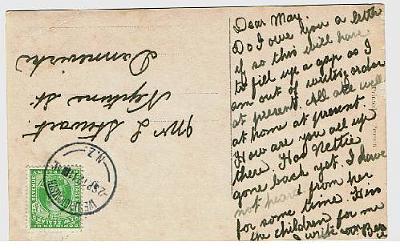 Dear May.
Do I owe you a letter
if so this will have
to fill up a gap as I
am out of writing order
at present. All are well
at home at present.
How are you all up
there Has Nettie
gone back yet. I have
not heard from her
for some time. Kiss
the children for me
I write
Mr L Stewart.
Neptune St.
Dannevirke
N.Z.